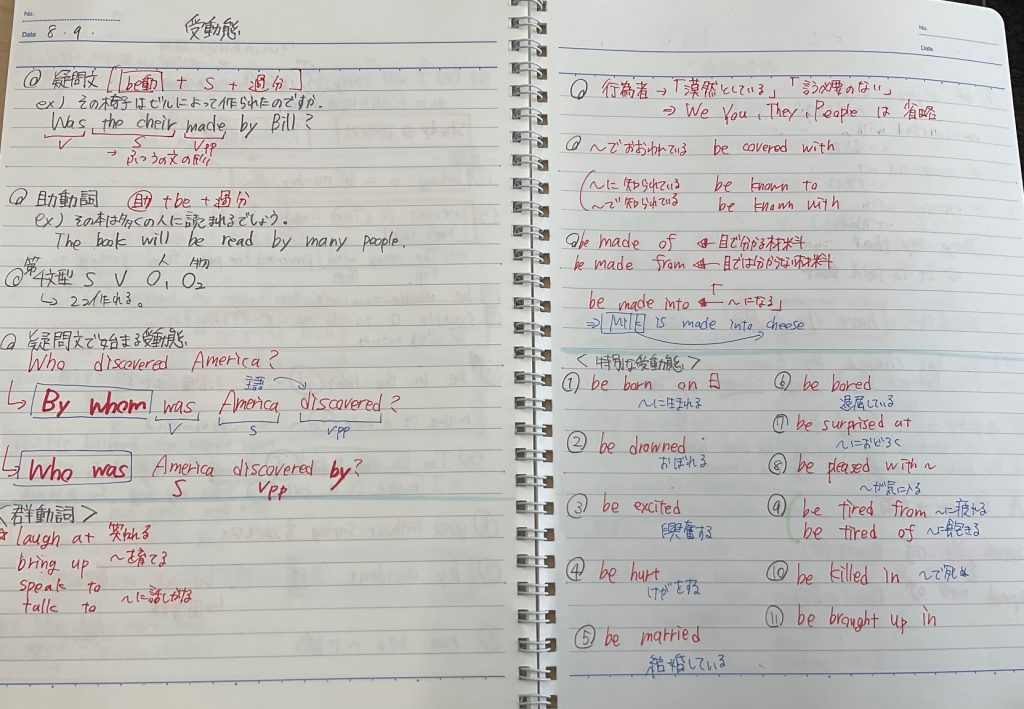 No.
Date 8.9.
受動態
疑問文 [be動 + S + 過分]
ex) その椅子はビルによって作られたのですか.
Was the cheir made by Bill?
V S Vpp
→ ふつうの文の
助動詞 助 + be + 過分
ex) その本は多くの人に読まれるでしょう.
The book will be read by many people.
人 物
第4文型 S V O1 O2
↳ 2つ作れる。
疑問文で始まる受動態
Who discovered America?
主語
↳ By whom was America discovered?
V S Vpp
↳ Who was America discovered by?
S Vpp
<群動詞>
☆ laugh at 笑われる
bring up 〜を育てる
speak to
talk to 〜に話しかける
No.
Date
行為者 → 「漠然としている」「言う必要のない」
⇒ We You, They, People は 省略
〜でおおわれている be covered with
〜に知られている be known to
〜で知られている be known with
be made of ← 目で分かる材料
be made from ← 目では分からない材料
be made into ← 「〜になる」
⇒ Milk is made into cheese
<特別な受動態>
① be born on 日
〜に生まれる
② be drowned
おぼれる
③ be excited
興奮する
④ be hurt
けがをする
⑤ be married
結婚している
⑥ be bored
退屈している
⑦ be surprised at
〜におどろく
⑧ be pleased with 〜
〜が気に入る
⑨ be tired from 〜に疲れる
be tired of 〜に飽きる
⑩ be killed in 〜で死ぬ
⑪ be brought up in